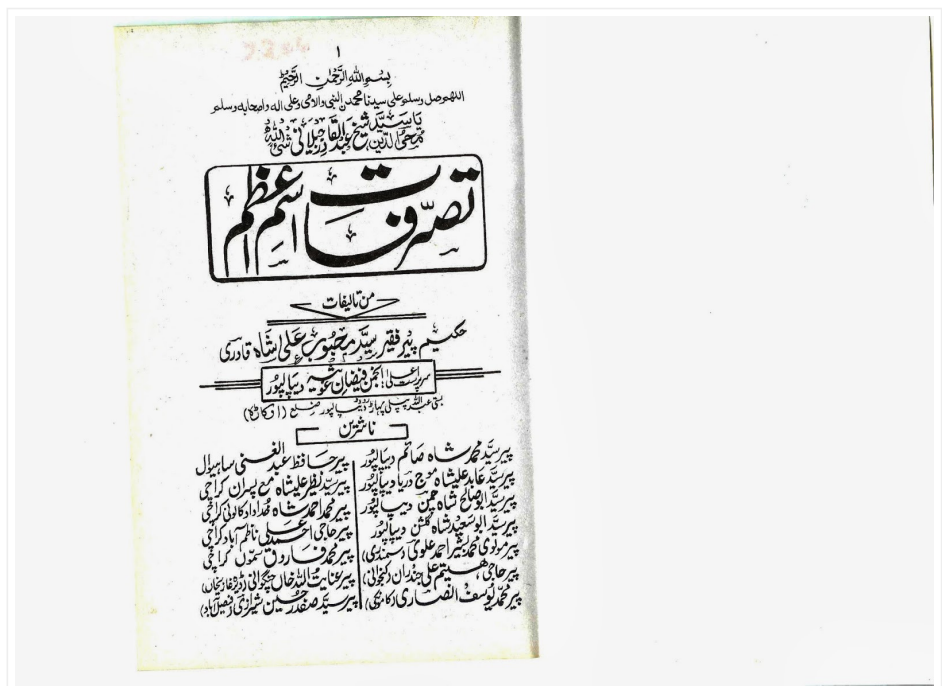 ۱
بسم اللہ الرحمٰن الرحیم
اللهم صل وسلم علی سیدنا محمدن النبی والامی وعلی اله واصحابه وسلم
یا سید شیخ عبدالقادر جیلانی شیئاً للہ
محی الدین
تصرفات اسم اعظم
من تالیفات
حکیم پیر فقیر سید محبوب علی شاہ قادری
سرپرست اعلیٰ: انجمن فیضان غوثیہ دیپالپور
بستی عبداللہ پپلی پہاڑ روڈ دیپالپور ضلع (اوکاڑہ)
ناشرین
پیر سید محمد شاہ صائم دیپالپور
پیر سید عابد علیشاہ موج دریا دیپالپور
پیر سید ابوصالح شاہ چمن دیپالپور
پیر سید ابوسعید شاہ گلشن دیپالپور
پیر مولوی محمد بشیر احمد علوی (سمندری)
پیر حاجی علی جندران
پیر محمد یوسف انصاری
پیر حافظ عبدالغنی ساہیوال
پیر سید نظر علیشاہ مع پسران کراچی
پیر محمد احمد شاہ خداداد کالونی کراچی
پیر حاجی احمد علی ناظم آباد کراچی
پیر محمد فاروق سموں کراچی
پیر عنایت اللہ خاں چنگوانی (ڈیرہ غازیخاں)
پیر سید صفدر حسین شیرازی (فیصل آباد)